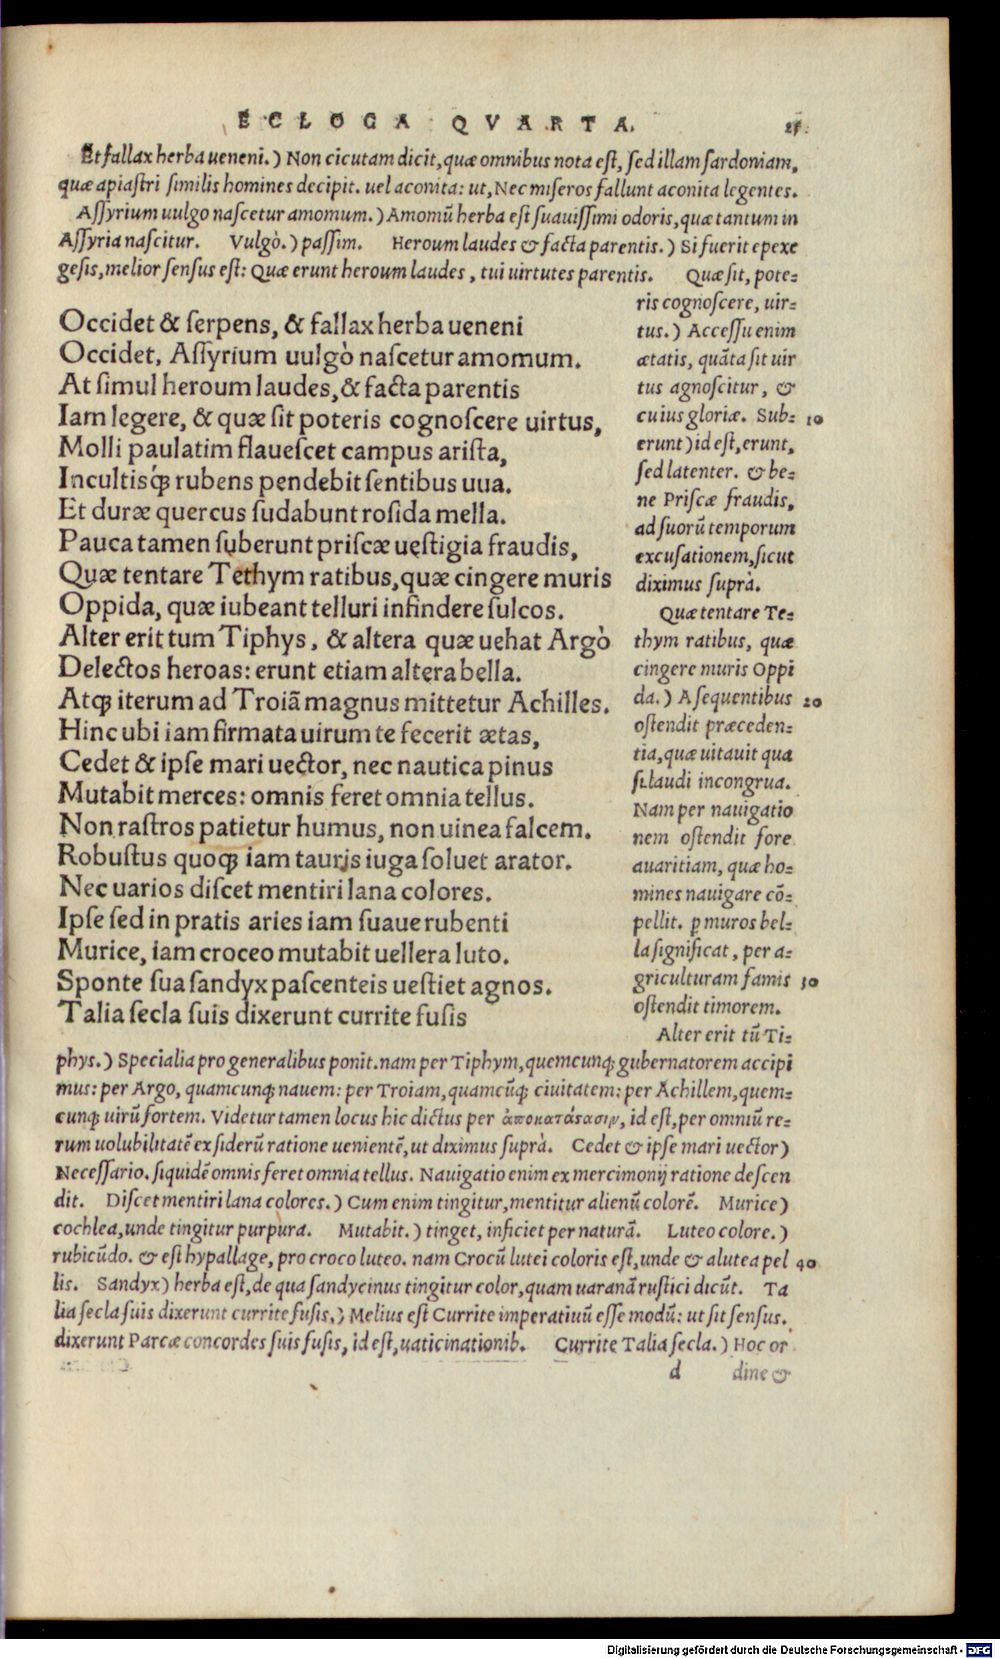 ECLOGA QVARTA. 25
Et fallax herba ueneni.) Non cicutam dicit, quæ omnibus nota eſt, ſed illam ſardoniam,
quæ apiaſtri ſimilis homines decipit. uel aconita: ut, Nec miſeros fallunt aconita legentes.
Aſſyrium uulgo naſcetur amomum.) Amomũ herba eſt ſuauiſſimi odoris, quæ tantum in
Aſſyria naſcitur. Vulgò.) paſſim. Heroum laudes & facta parentis.) Si fuerit epexe
geſis, melior ſenſus eſt: Quæ erunt heroum laudes, tui uirtutes parentis. Quæ ſit, pote-
Occidet & ſerpens, & fallax herba ueneni
Occidet, Aſſyrium uulgò naſcetur amomum.
At ſimul heroum laudes, & facta parentis
Iam legere, & quæ ſit poteris cognoſcere uirtus,
Molli paulatim flaueſcet campus ariſta,
Incultisq́; rubens pendebit ſentibus uua.
Et duræ quercus ſudabunt roſida mella.
Pauca tamen ſuberunt priſcæ ueſtigia fraudis,
Quæ tentare Tethym ratibus, quæ cingere muris
Oppida, quæ iubeant telluri infindere ſulcos.
Alter erit tum Tiphys, & altera quæ uehat Argò
Delectos heroas: erunt etiam altera bella.
Atq; iterum ad Troiã magnus mittetur Achilles.
Hinc ubi iam firmata uirum te fecerit ætas,
Cedet & ipſe mari uector, nec nautica pinus
Mutabit merces: omnis feret omnia tellus.
Non raſtros patietur humus, non uinea falcem.
Robuſtus quoq; iam tauris iuga ſoluet arator.
Nec uarios diſcet mentiri lana colores.
Ipſe ſed in pratis aries iam ſuaue rubenti
Murice, iam croceo mutabit uellera luto.
Sponte ſua ſandyx paſcenteis ueſtiet agnos.
Talia ſecla ſuis dixerunt currite fuſis
ris cognoſcere, uir-
tus.) Acceſſu enim
ætatis, quãta ſit uir
tus agnoſcitur, &
cuius gloriæ. Sub- 10
erunt) id eſt, erunt,
ſed latenter. & be-
ne Priſcæ fraudis,
ad ſuorũ temporum
excuſationem, ſicut
diximus ſuprà.
Quæ tentare Te-
thym ratibus, quæ
cingere muris Oppi
da.) A ſequentibus 20
oſtendit præceden-
tia, quæ uitauit qua
ſi laudi incongrua.
Nam per nauigatio
nem oſtendit fore
auaritiam, quæ ho-
mines nauigare cõ-
pellit. ꝑ muros bel-
la ſignificat, per a-
griculturam famis 30
oſtendit timorem.
Alter erit tũ Ti-
phys.) Specialia pro generalibus ponit. nam per Tiphym, quemcunq; gubernatorem accipi
mus: per Argo, quamcunq; nauem: per Troiam, quamcũq; ciuitatem: per Achillem, quem-
cunq; uirũ fortem. Videtur tamen locus hic dictus per ἀποκατάστασιν, id eſt, per omniũ re-
rum uolubilitatẽ ex ſiderũ ratione uenientẽ, ut diximus ſuprà. Cedet & ipſe mari uector)
Neceſſario. ſiquidẽ omnis feret omnia tellus. Nauigatio enim ex mercimonij ratione deſcen
dit. Diſcet mentiri lana colores.) Cum enim tingitur, mentitur alienũ colorẽ. Murice)
cochlea, unde tingitur purpura. Mutabit.) tinget, inficiet per naturã. Luteo colore.)
rubicũdo. & eſt hypallage, pro croco luteo. nam Crocũ lutei coloris eſt, unde & alutea pel 40
lis. Sandyx) herba eſt, de qua ſandycinus tingitur color, quam uaranã ruſtici dicũt. Ta
lia ſecla ſuis dixerunt currite fuſis.) Melius eſt Currite imperatiuũ eſſe modũ: ut ſit ſenſus.
dixerunt Parcæ concordes ſuis fuſis, id eſt, uaticinationib. Currite Talia ſecla.) Hoc or
d dine &
Digitalisierung gefördert durch die Deutsche Forschungsgemeinschaft - DFG